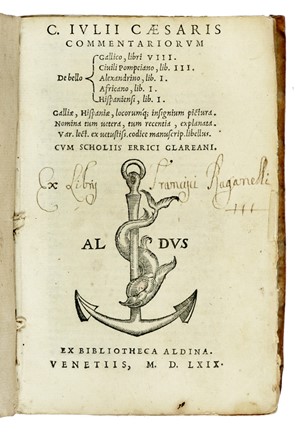 C. IVLII CÆSARIS
COMMENTARIORVM
De bello
Gallico, libri VIII.
Ciuili Pompeiano, lib. III.
Alexandrino, lib. I.
Africano, lib. I.
Hispaniensi, lib. I.
Galliæ, Hispaniæ, locorumq; insignium pictura.
Nomina tum uetera, tum recentia, explanata.
Var. lect. ex uetustiss. codice manuscrip. libellus.
CVM SCHOLIIS ERRICI GLAREANI.
Ex Libris Francisci Raganelli
ALDVS
EX BIBLIOTHECA ALDINA.
VENETIIS, M. D. LXIX.